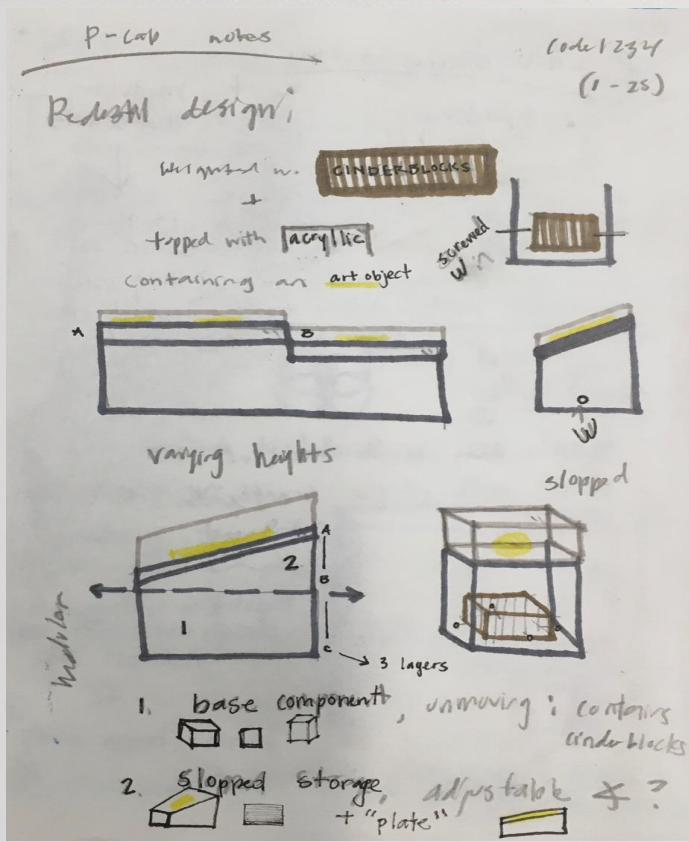 P-Lab notes
Code 1234
(1-25)
Pedestal design;
Weighted w. CINDERBLOCKS
+
topped with acryllic
screwed in
W
containing an art object
A B
W
varying heights
slopped
A
2
B
Modular
1
C
→ 3 layers
1. base component, unmoving: contains
cinderblocks
2. slopped storage, adjustable ?
+ "plate"